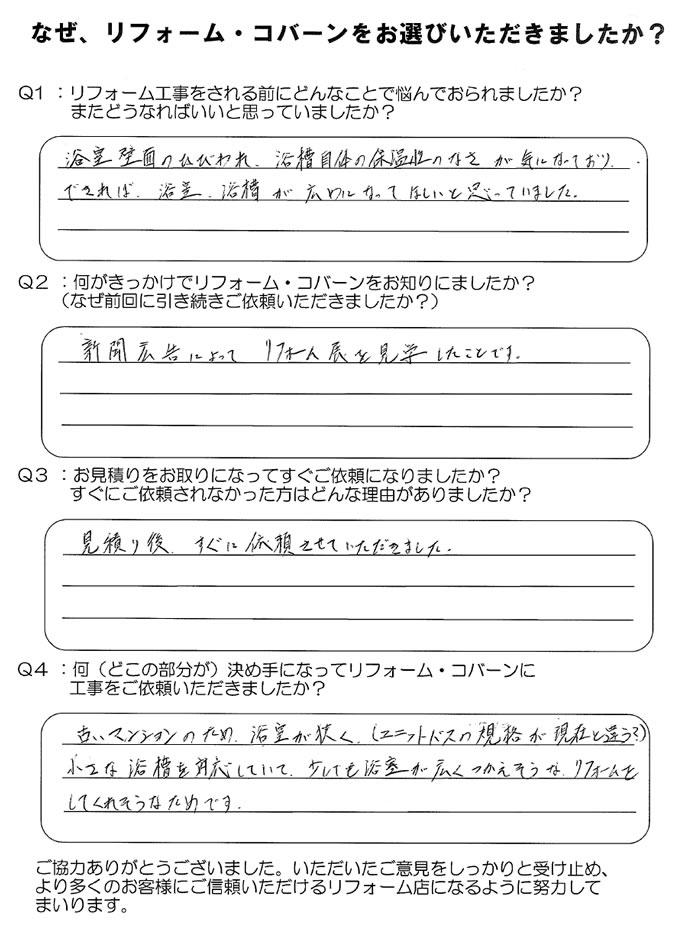 なぜ、リフォーム・コバーンをお選びいただきましたか？
Q1 ：リフォーム工事をされる前にどんなことで悩んでおられましたか？
またどうなればいいと思っていましたか？
浴室壁面のひびわれ、浴槽自体の保温性のなさが気になっており、
できれば、浴室、浴槽が広めになってほしいと思っていました。
Q2 ：何がきっかけでリフォーム・コバーンをお知りにましたか？
（なぜ前回に引き続きご依頼いただきましたか？）
新聞広告によって リフォーム展を見学したことです。
Q3 ：お見積りをお取りになってすぐご依頼になりましたか？
すぐにご依頼されなかった方はどんな理由がありましたか？
見積り後、すぐに依頼させていただきました。
Q4 ：何（どこの部分が）決め手になってリフォーム・コバーンに
工事をご依頼いただきましたか？
古いマンションのため、浴室が狭く、（ユニットバスの規格が現在と違う？）
小さな浴槽を対応していて、少しでも浴室が広くつかえそうな、リフォームを
してくれそうなためです。
ご協力ありがとうございました。いただいたご意見をしっかりと受け止め、
より多くのお客様にご信頼いただけるリフォーム店になるように努力して
まいります。